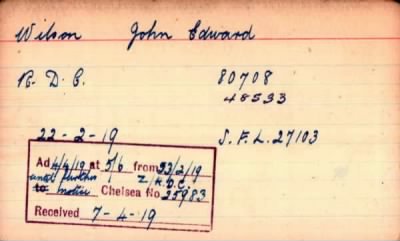 Wilson John Edward
R. D. C. 80708
48533
22-2-19 S.F.L. 27103
Ad 4/4/19 at 5/6 from 22/2/19
until further Z/R.D.C.
to notice Chelsea No 25983
Received 7-4-19